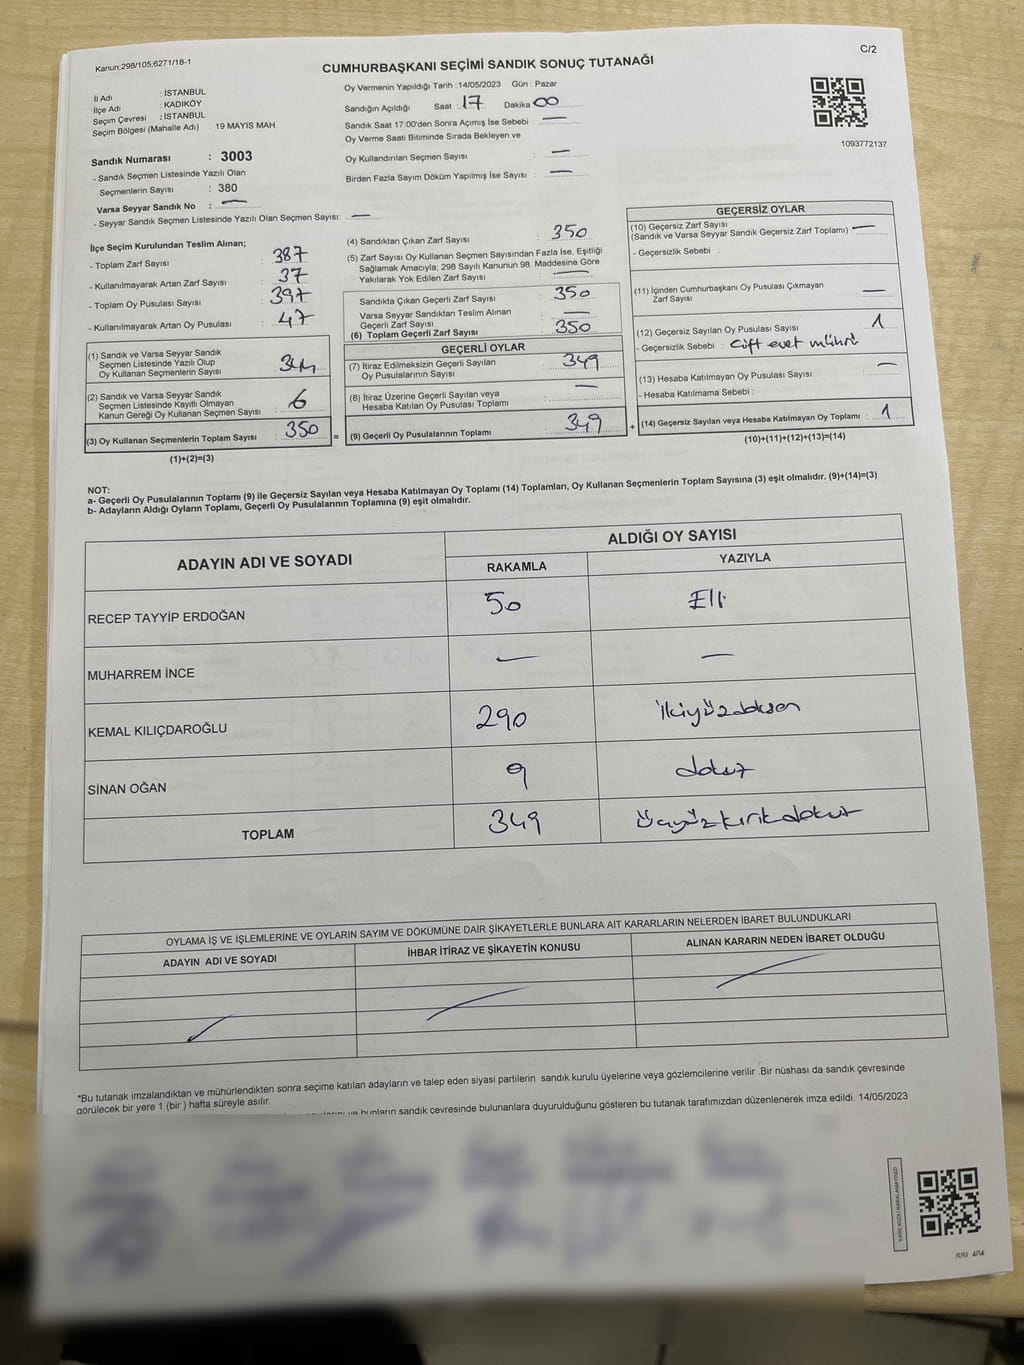 Kanun:298/105;6271/18-1
C/2
CUMHURBAŞKANI SEÇİMİ SANDIK SONUÇ TUTANAĞI
İl Adı : İSTANBUL
İlçe Adı : KADIKÖY
Seçim Çevresi : İSTANBUL
Seçim Bölgesi (Mahalle Adı) : 19 MAYIS MAH.
Oy Vermenin Yapıldığı Tarih :14/05/2023 Gün : Pazar
Sandığın Açıldığı Saat : 17 Dakika 00
Sandık Saat 17:00'den Sonra Açımış İse Sebebi : —
Oy Verme Saati Bitiminde Sırada Bekleyen ve
Oy Kullandırılan Seçmen Sayısı : —
Birden Fazla Sayım Döküm Yapılmış İse Sayısı : —
1093772137
Sandık Numarası : 3003
- Sandık Seçmen Listesinde Yazılı Olan
Seçmenlerin Sayısı : 380
Varsa Seyyar Sandık No : —
- Seyyar Sandık Seçmen Listesinde Yazılı Olan Seçmen Sayısı: —
İlçe Seçim Kurulundan Teslim Alınan;
- Toplam Zarf Sayısı : 387
- Kullanılmayarak Artan Zarf Sayısı : 37
- Toplam Oy Pusulası Sayısı : 397
- Kullanılmayarak Artan Oy Pusulası : 47
(1) Sandık ve Varsa Seyyar Sandık
Seçmen Listesinde Yazılı Olup
Oy Kullanan Seçmenlerin Sayısı : 344
(2) Sandık ve Varsa Seyyar Sandık
Seçmen Listesinde Kayıtlı Olmayan
Kanun Gereği Oy Kullanan Seçmen Sayısı : 6
(3) Oy Kullanan Seçmenlerin Toplam Sayısı : 350
=
(1)+(2)=(3)
(4) Sandıktan Çıkan Zarf Sayısı : 350
(5) Zarf Sayısı Oy Kullanan Seçmen Sayısından Fazla İse, Eşitliği
Sağlamak Amacıyla; 298 Sayılı Kanunun 98. Maddesine Göre
Yakılarak Yok Edilen Zarf Sayısı : —
Sandıkta Çıkan Geçerli Zarf Sayısı : 350
Varsa Seyyar Sandıktan Teslim Alınan
Geçerli Zarf Sayısı : —
(6) Toplam Geçerli Zarf Sayısı : 350
GEÇERLİ OYLAR
(7) İtiraz Edilmeksizin Geçerli Sayılan
Oy Pusulalarının Sayısı : 349
(8) İtiraz Üzerine Geçerli Sayılan veya
Hesaba Katılan Oy Pusulası Toplamı : —
(9) Geçerli Oy Pusulalarının Toplamı : 349
+
GEÇERSİZ OYLAR
(10) Geçersiz Zarf Sayısı
(Sandık ve Varsa Seyyar Sandık Geçersiz Zarf Toplamı) : —
- Geçersizlik Sebebi :
(11) İçinden Cumhurbaşkanı Oy Pusulası Çıkmayan
Zarf Sayısı : —
(12) Geçersiz Sayılan Oy Pusulası Sayısı : 1
- Geçersizlik Sebebi : Çift evet mührü
(13) Hesaba Katılmayan Oy Pusulası Sayısı : —
- Hesaba Katılmama Sebebi :
(14) Geçersiz Sayılan veya Hesaba Katılmayan Oy Toplamı : 1
(10)+(11)+(12)+(13)=(14)
NOT:
a- Geçerli Oy Pusulalarının Toplamı (9) ile Geçersiz Sayılan veya Hesaba Katılmayan Oy Toplamı (14) Toplamları, Oy Kullanan Seçmenlerin Toplam Sayısına (3) eşit olmalıdır. (9)+(14)=(3)
b- Adayların Aldığı Oyların Toplamı, Geçerli Oy Pusulalarının Toplamına (9) eşit olmalıdır.
ADAYIN ADI VE SOYADI
ALDIĞI OY SAYISI
RAKAMLA YAZIYLA
RECEP TAYYİP ERDOĞAN 50 Elli
MUHARREM İNCE — —
KEMAL KILIÇDAROĞLU 290 ikiyüzdoksan
SİNAN OĞAN 9 dokuz
TOPLAM 349 üçyüzkırkdokuz
OYLAMA İŞ VE İŞLEMLERİNE VE OYLARIN SAYIM VE DÖKÜMÜNE DAİR ŞİKAYETLERLE BUNLARA AİT KARARLARIN NELERDEN İBARET BULUNDUKLARI
ADAYIN ADI VE SOYADI İHBAR İTİRAZ VE ŞİKAYETİN KONUSU ALINAN KARARIN NEDEN İBARET OLDUĞU
*Bu tutanak imzalandıktan ve mühürlendikten sonra seçime katılan adayların ve talep eden siyasi partilerin sandık kurulu üyelerine veya gözlemcilerine verilir .Bir nüshası da sandık çevresinde
görülecek bir yere 1 (bir ) hafta süreyle asılır.
ve bunların sandık çevresinde bulunanlara duyurulduğunu gösteren bu tutanak tarafımızdan düzenlenerek imza edildi. 14/05/2023
KARE KODU KARALAMAYINIZ!